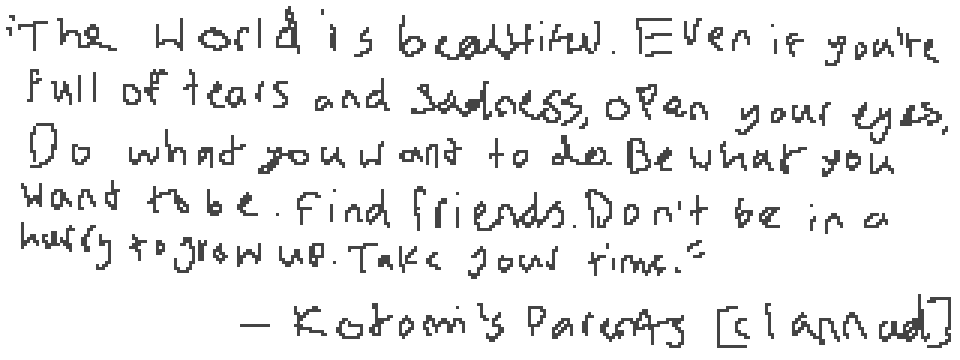 "The world is beautiful. Even if you're
full of tears and sadness, open your eyes,
Do what you want to do Be what you
want to be. Find friends. Don't be in a
hurry to grow up. Take your time."
— Kotomi's Parents [Clannad]